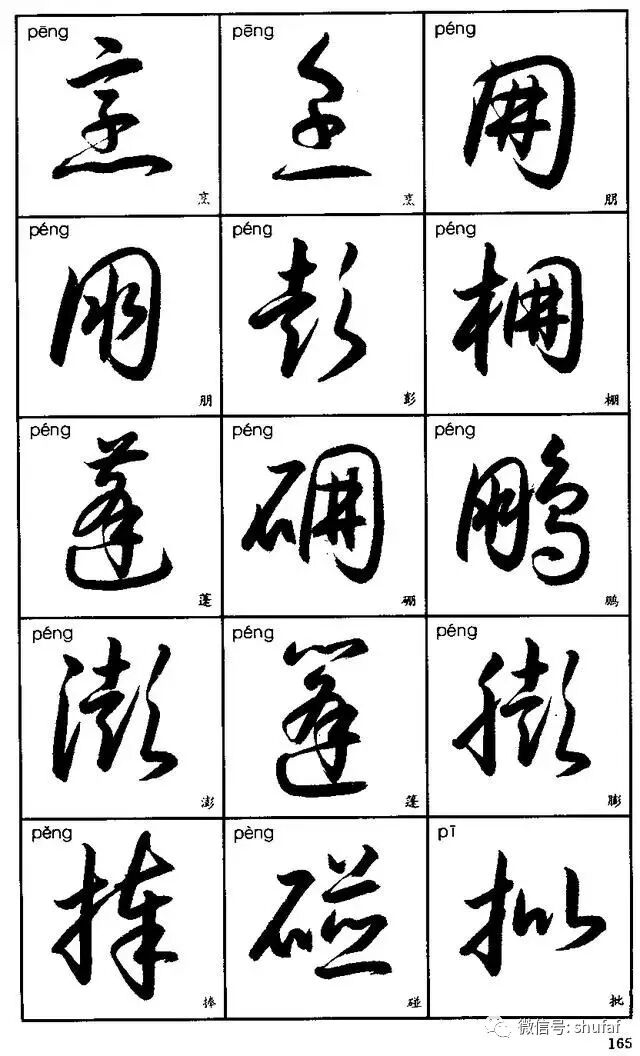 pēng pēng péng
烹 烹 朋
烹 烹 朋
péng péng péng
朋 彭 棚
朋 彭 棚
péng péng péng
蓬 硼 鹏
蓬 硼 鹏
péng péng péng
澎 篷 膨
澎 篷 膨
pěng pèng pī
捧 碰 批
捧 碰 批
微信号: shufaf
165